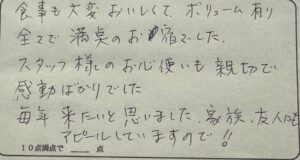 食事も大変おいしくて ボリューム有り
全てで満点のお宿でした.
スタッフ様のお心使いも親切で
感動ばかりでした
毎年来たいと思いました. 家族、友人にも
アピールしていますので!!
10点満点で 点